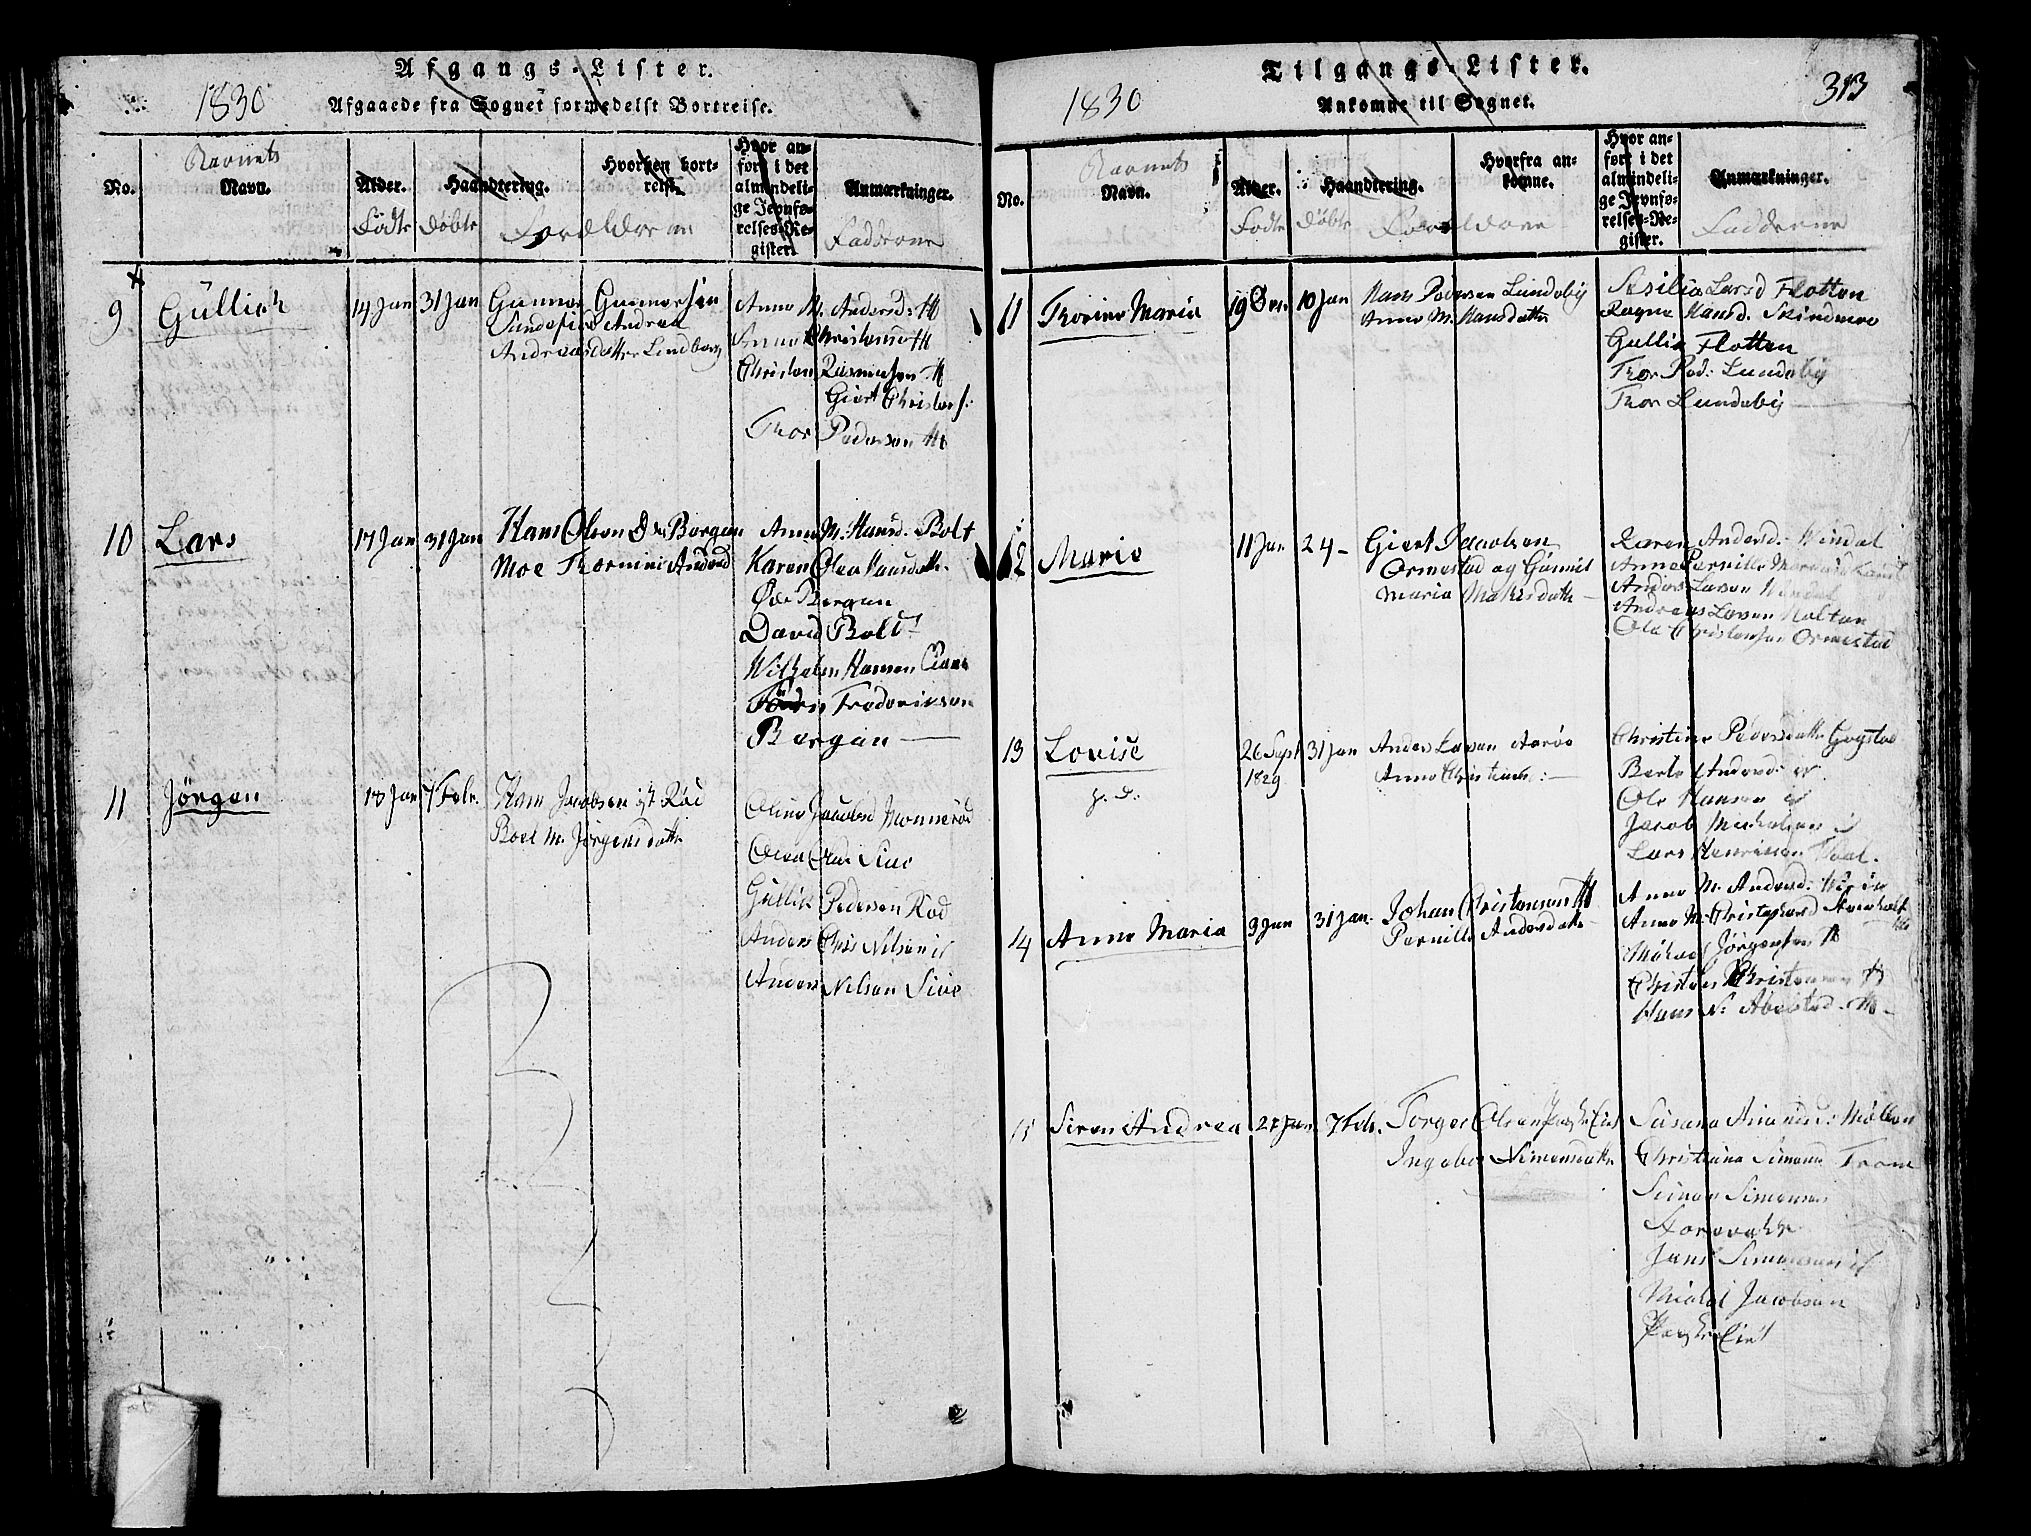 Afgangs-Lister.
1830
Afgaaede fra Sognet formedelst Bortreise.
No.
Barnets
Navn.
Alder.
Haandtering.
Hvorhen bort-
reist.
Hvor an-
ført i det
almindeli-
ge Jevnfø-
relses-Re-
gister.
Anmærkninger.
Födte
Döbte
Forældrene
Fadderne
9
Gullich
14 Jan
31 Jan
Gunnar Gunnersen
Sandefior Andrea
Andreasdatter Lindberg
Anne M. Andersd:
Anne Christensd
Christen Rasmussen
Giert Christens:
Thor Pedersen
10
Lars
17 Jan
31 Jan
Hans Olsen Ø. Bergan
Moe Thorine Andersd
Anne M. Hansd. Bolt
Karen Olea Hansdatt.
Øde Bergan
David Bolt
Wilhelm Hansen
Frederiksen
Bergan
11
Jörgen
18 Jan
7 Febr.
Hans Jacobsen Röd
Boel M. Jörgensdatt
Oline Jacobsd Monneröd
Olea Sive
Gullik Pedersen Röd
Anders Chris Nilsen
Anders Nilsen Sive
Tilgangs-Lister.
1830
313
Ankomne til Sognet.
No.
Barnets
Navn.
Alder.
Haandtering.
Hvorfra an-
komne.
Hvor an-
ført i det
almindeli-
ge Jevnfø-
relses-Re-
gister.
Anmærkninger.
Födte
Döbte
Forældrene
Fadderne
11
Thorine Maria
19
10 Jan
Hans Pedersen Lundeby
Anne M. Hansdatter
Sesilia Larsd Flotten
Ragne Hansd. Skindmoe
Gullik Flotten
Thor Ped: Lundeby
Thor Lundeby
12
Marie
11 Jan
24 –
Giert Jacobsen
Ormestad og Gunnil
Maria
Karen Andersd: Windal
Anne Pernille
Anders Larsen Windal
Andreas Larsen Holtan
Ole Christensen Ormestad
13
Lovise
26 Sept
1829
31 Jan
Anders Larsen Aaröe
Anne Christine: –
Christine Pedersdatter Gogstad
Berte Andersd:
Ole Hansen
Jacob
Lars Henriksen
14
Anne Maria
9 Jan
31 Jan.
Johan Christensen
Pernille Andersdatt
Anne M. Andersd:
Anne M. Christophersd
Jörgensen
Christen Christensen
Hans N. Abelsted
15
Siren Andrea
27 Jan
7 Feb.
Torger Olsen
Ingebor Simensdatt
Susana Amunds: Möllen
Christiana Simens Trom
Simon Simensen
Jens Simensen
Jacobsen